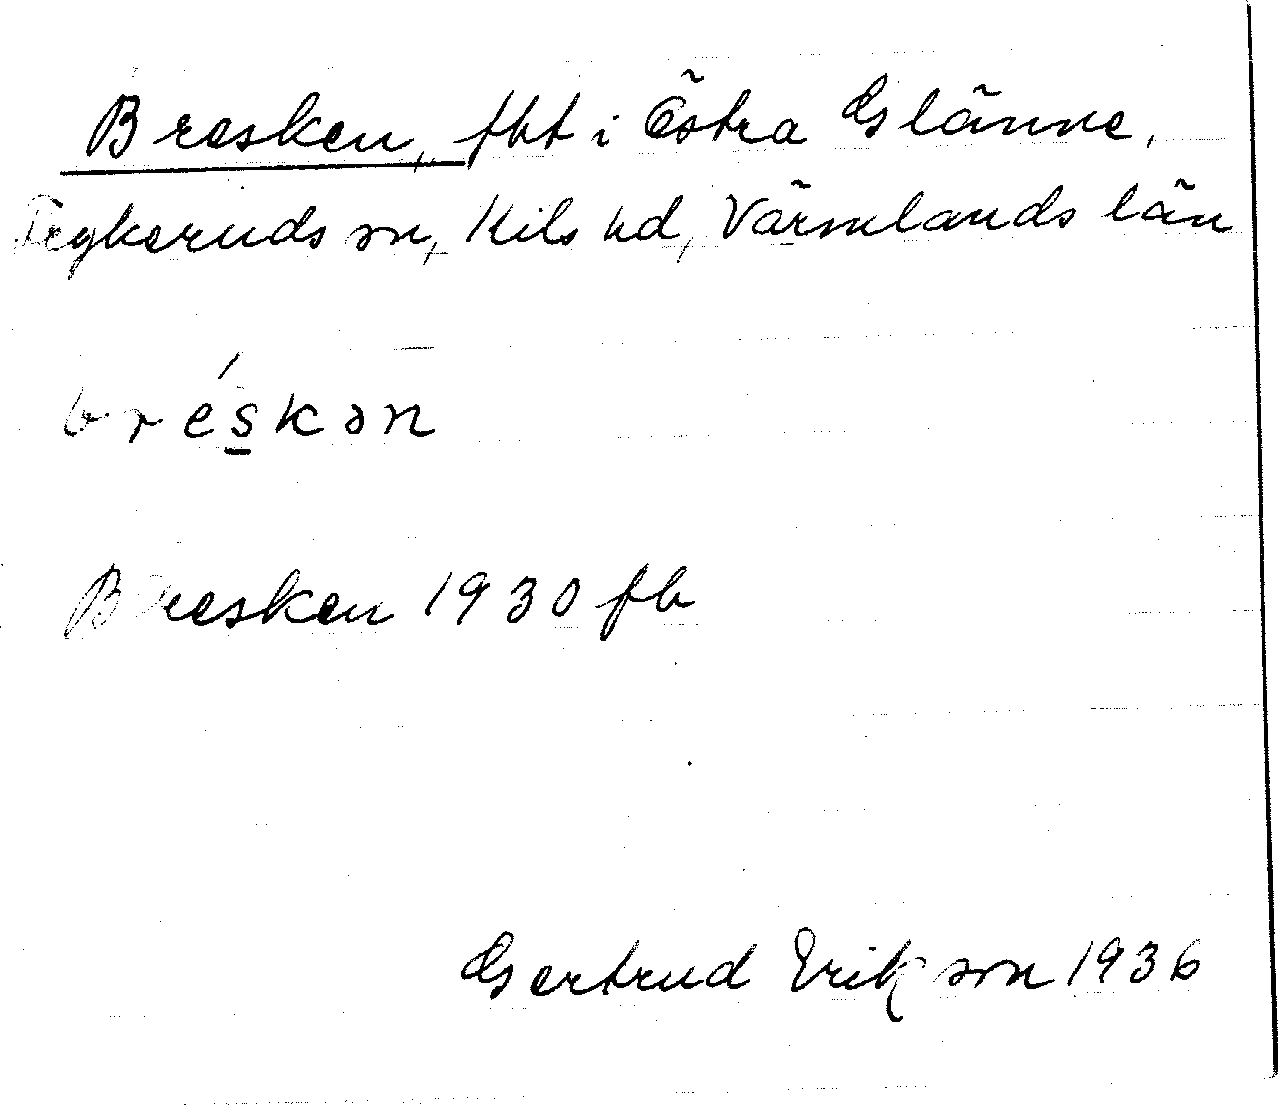 Bresken, fbt i Östra Glänne,
Frykeruds sn, Kils hd, Värmlands län
bréskən
Bresken 1930 fb
Gertrud Erikson 1936